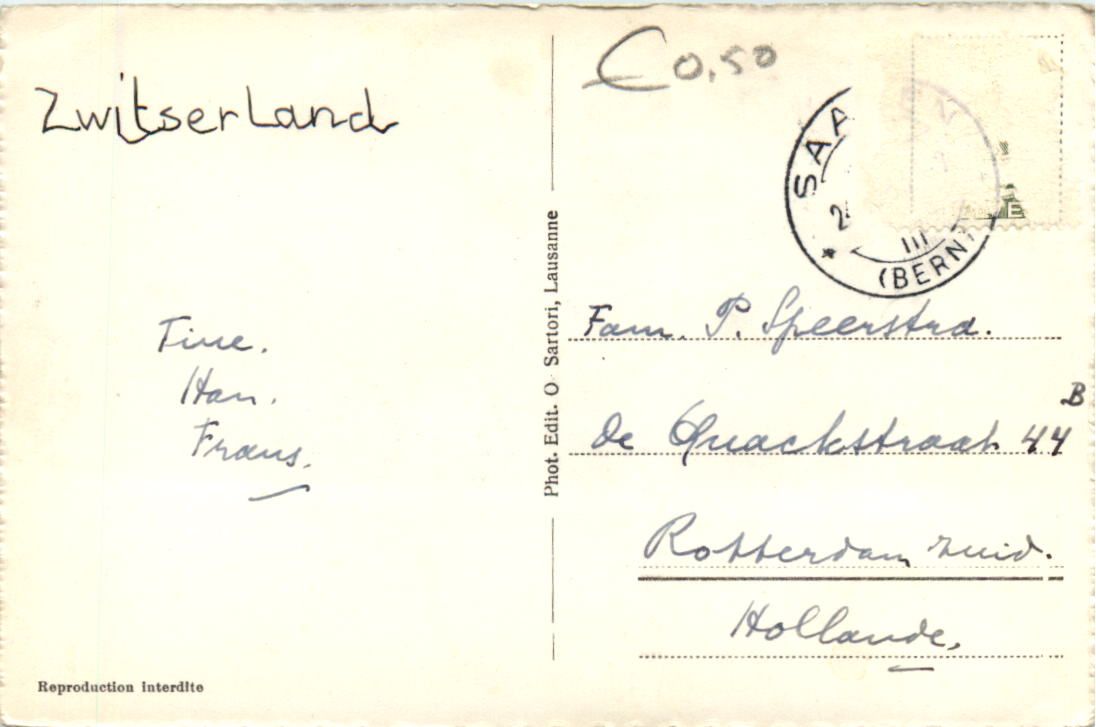 Zwitserland
€0,50
SAA EN
2
III
(BERN)
Tine.
Han.
Frans.
Phot. Edit. O. Sartori, Lausanne
Fam. P. Speerstra.
de Quackstraat 44 B
Rotterdam zuid.
Hollande.
E
Reproduction interdite